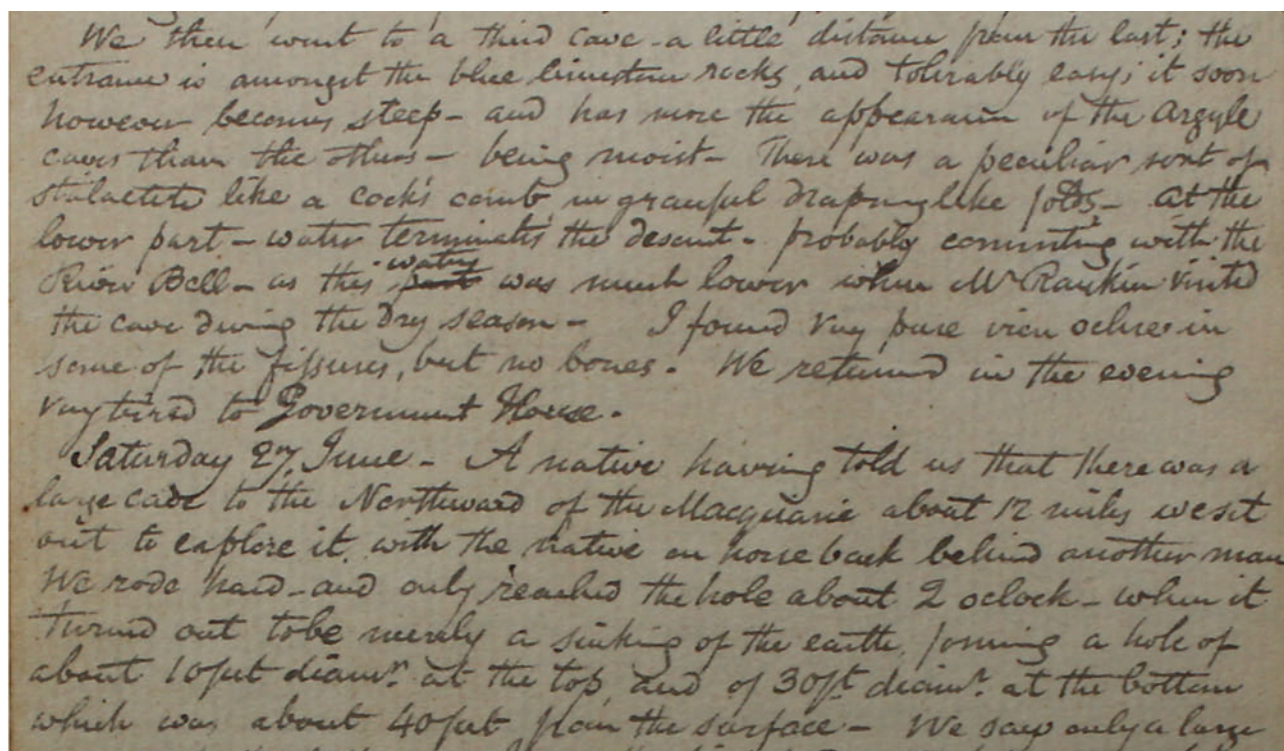 We then went to a third cave - a little distance from the last; the
entrance is amongst the blue limestone rocks, and tolerably easy; it soon
however becomes steep - and has more the appearance of the Argyle
caves than the others - being moist - There was a peculiar sort of
stalactite like a cock's comb in graceful drapery like folds - At the
lower part - water terminates the descent - probably connecting with the
River Bell - as this water part was much lower when Mr Rankin visited
the cave during the dry season - I found very pure iron ochre in
some of the fissures, but no bones. We returned in the evening
very tired to Government House.
Saturday 27, June - A native having told us that there was a
large cave to the Northward of the Macquarie about 12 miles we set
out to explore it, with the native on horseback behind another man
We rode hard - and only reached the hole about 2 oclock - when it
turned out to be merely a sinking of the earth, forming a hole of
about 10 feet diamr. at the top, and of 30 ft. diamr. at the bottom
which was about 40 feet from the surface - We saw only a large